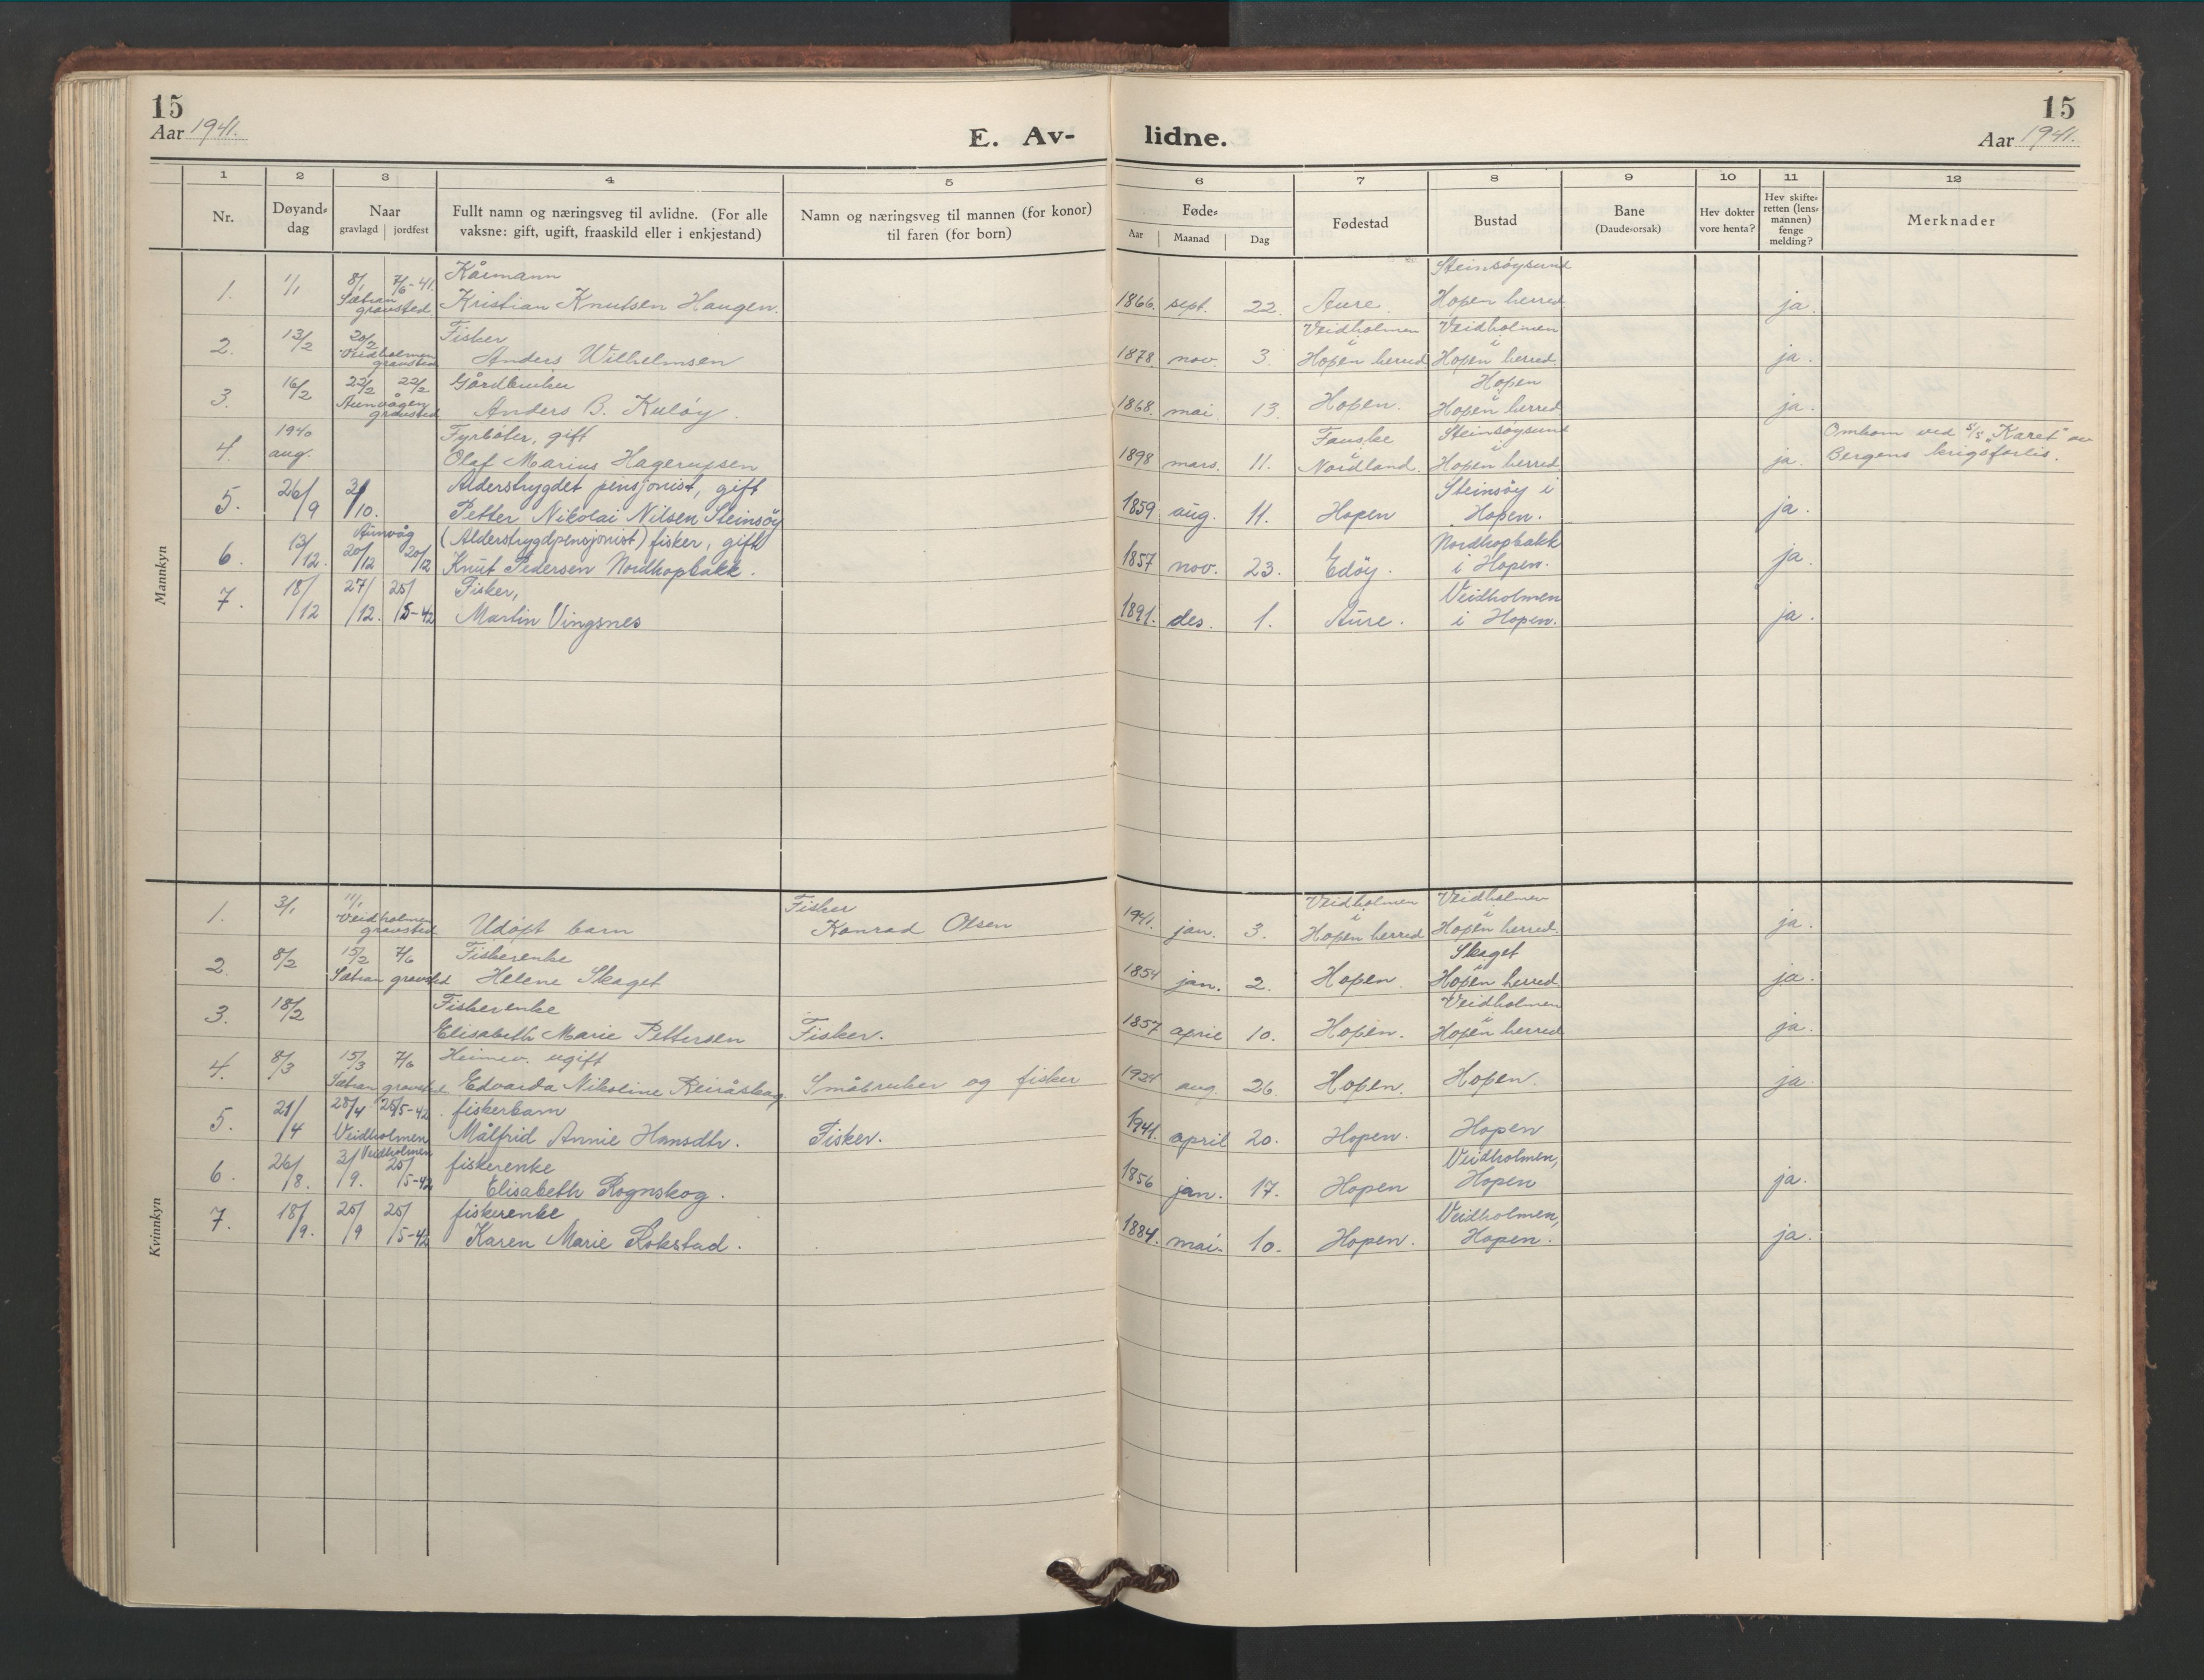 15
Aar 1941.
E. Av-
lidne.
15
Aar 1941.
1 2 3 4 5 6 7 8 9 10 11 12
Nr.
Døyand-
dag
Naar
gravlagd jordfest
Fullt namn og næringsveg til avlidne. (For alle
vaksne: gift, ugift, fraaskild eller i enkjestand)
Namn og næringsveg til mannen (for konor)
til faren (for born)
Føde-
Aar Maanad Dag
Fødestad
Bustad
Bane
(Daude-orsak)
Hev dokter
vore henta?
Hev skifte-
retten (lens-
mannen)
fenge
melding?
Merknader
Mannkyn
Kårmann Steinsøysund
1. 1/1 8/1 7/6-41. Kristian Knutsen Haugen. 1866. sept. 22. Aure. Hopen herred ja.
Sætran
gravsted.
Fisker Veidholmen Veidholmen
i i
2. 13/2 20/2 Anders Wilhelmsen 1878. nov. 3. Hopen herred Hopen herred. ja.
Veidholmen
gravsted
Gårdbruker Hopen
i
3. 16/2 22/2 22/2 Anders B. Kuløy. 1868. mai. 13. Hopen. Hopen herred ja.
Aunvågen
gravsted
1940 Fyrbøter, gift Fauske Steinsøysund Omkom ved s/s "Karet" av
4. aug. Olaf Marius Hagerupsen 1898 mars. 11. Nordland. Hopen herred ja. Bergens krigsforlis.
Alderstrygdet pensjonist, gift Steinsøy i
5. 26/9 2/10. Petter Nikolai Nilsen Steinsøy 1859 aug. 11. Hopen Hopen. ja.
Aunvåg
(Alderstrygdpensjonist) fisker, gift Nordhopbakk
6. 13/12. 20/12 20/12 Knut Pedersen Nordhopbakk. 1857 nov. 23. Edøy. i Hopen. ja.
Fisker, Veidholmen
7. 18/12 27/12. 25/5-42 Martin Vingsnes 1891. des. 1. Aure. i Hopen. ja.
Kvinnkyn
Fisker Veidholmen Veidholmen
i i
1. 3/1 11/1 Udøpt barn Konrad Olsen 1941. jan. 3. Hopen herred Hopen herred. ja.
Veidholmen
gravsted
Fiskerenke Skaget
i
2. 8/2 15/2 7/6 Helene Skaget 1854 jan. 2. Hopen. Hopen herred. ja.
Sætran gravsted
Fiskerenke Veidholmen
i
3. 18/2 Elisabeth Marie Pettersen Fisker. 1857 april 10. Hopen. Hopen herred ja.
Heimev. ugift
4. 8/3 15/3 7/6 Edvarda Nikoline Reiråskag. Småbruker og fisker 1921 aug. 26. Hopen. Hopen. ja.
Sætran gravsted
fiskerbarn
5. 21/4 28/4 25/5-42. Målfrid Annie Hansdtr. Fisker. 1941. april 20. Hopen. Hopen
Veidholmen
fiskerenke Veidholmen,
6. 26/8. 3/9. 25/5-42 Elisabeth Rognskog. 1856 jan. 17. Hopen Hopen ja.
Veidholmen
fiskerenke Veidholmen,
7. 18/9. 25/9 25/5-42 Karen Marie Rokstad. 1884. mai. 10. Hopen. Hopen. ja.